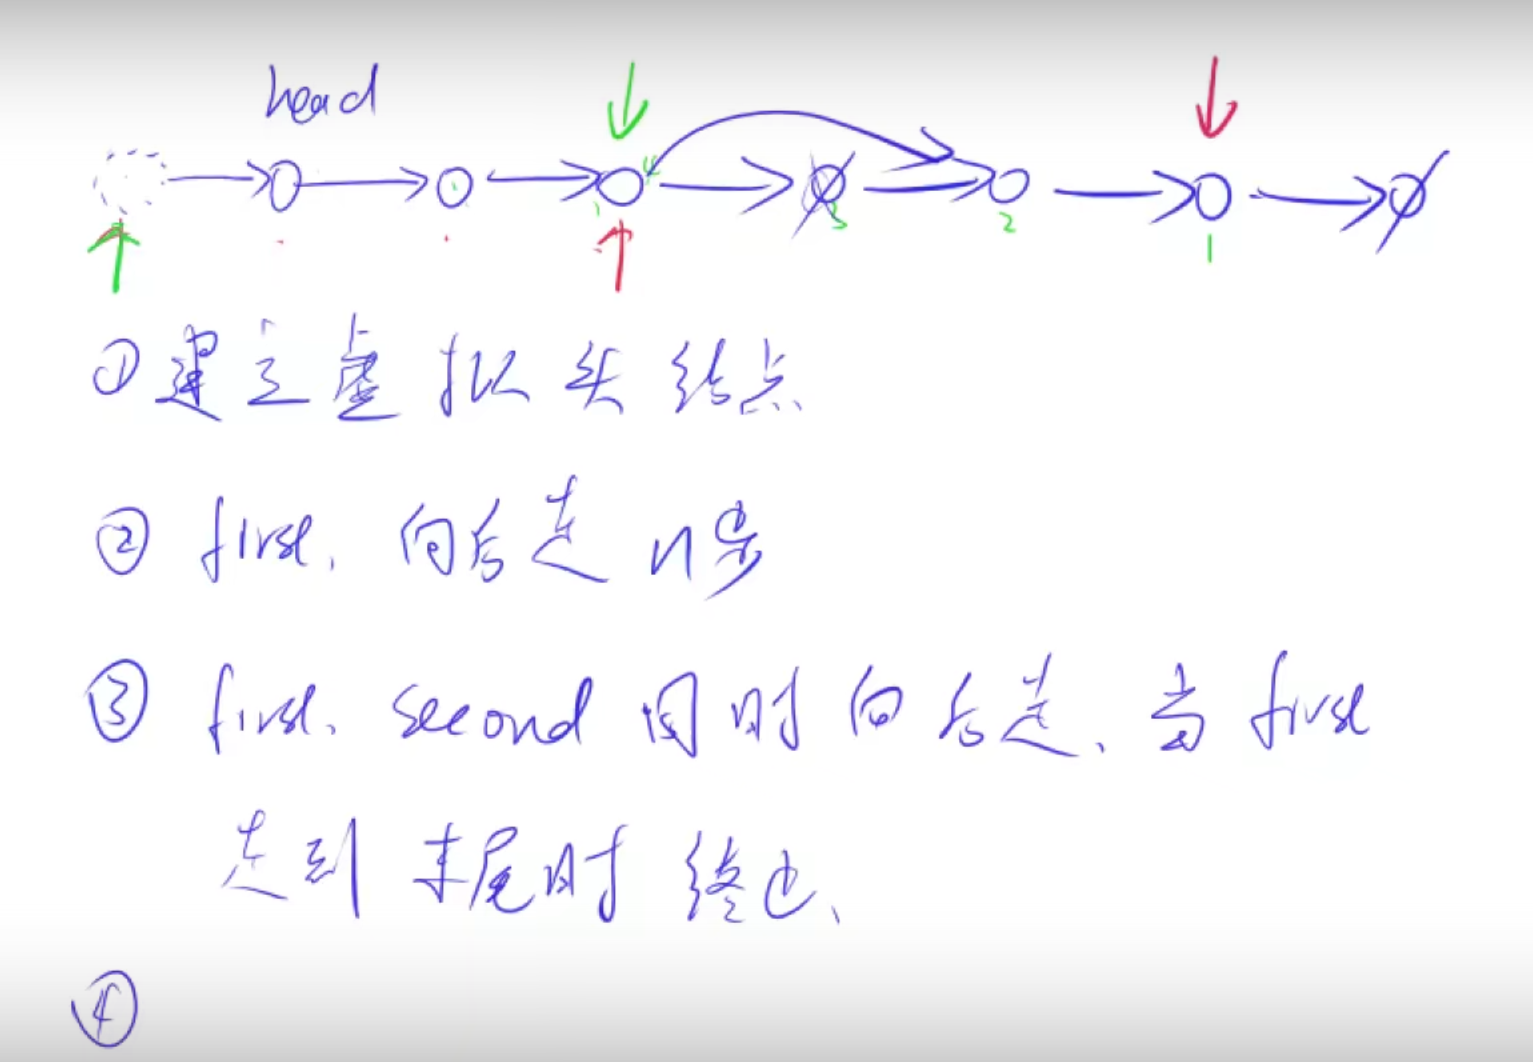 head
4
3
2
1
①建立虚拟头结点
② first. 向后走 n步
③ first、second 同时向后走、当 first
走到末尾时终止、
④